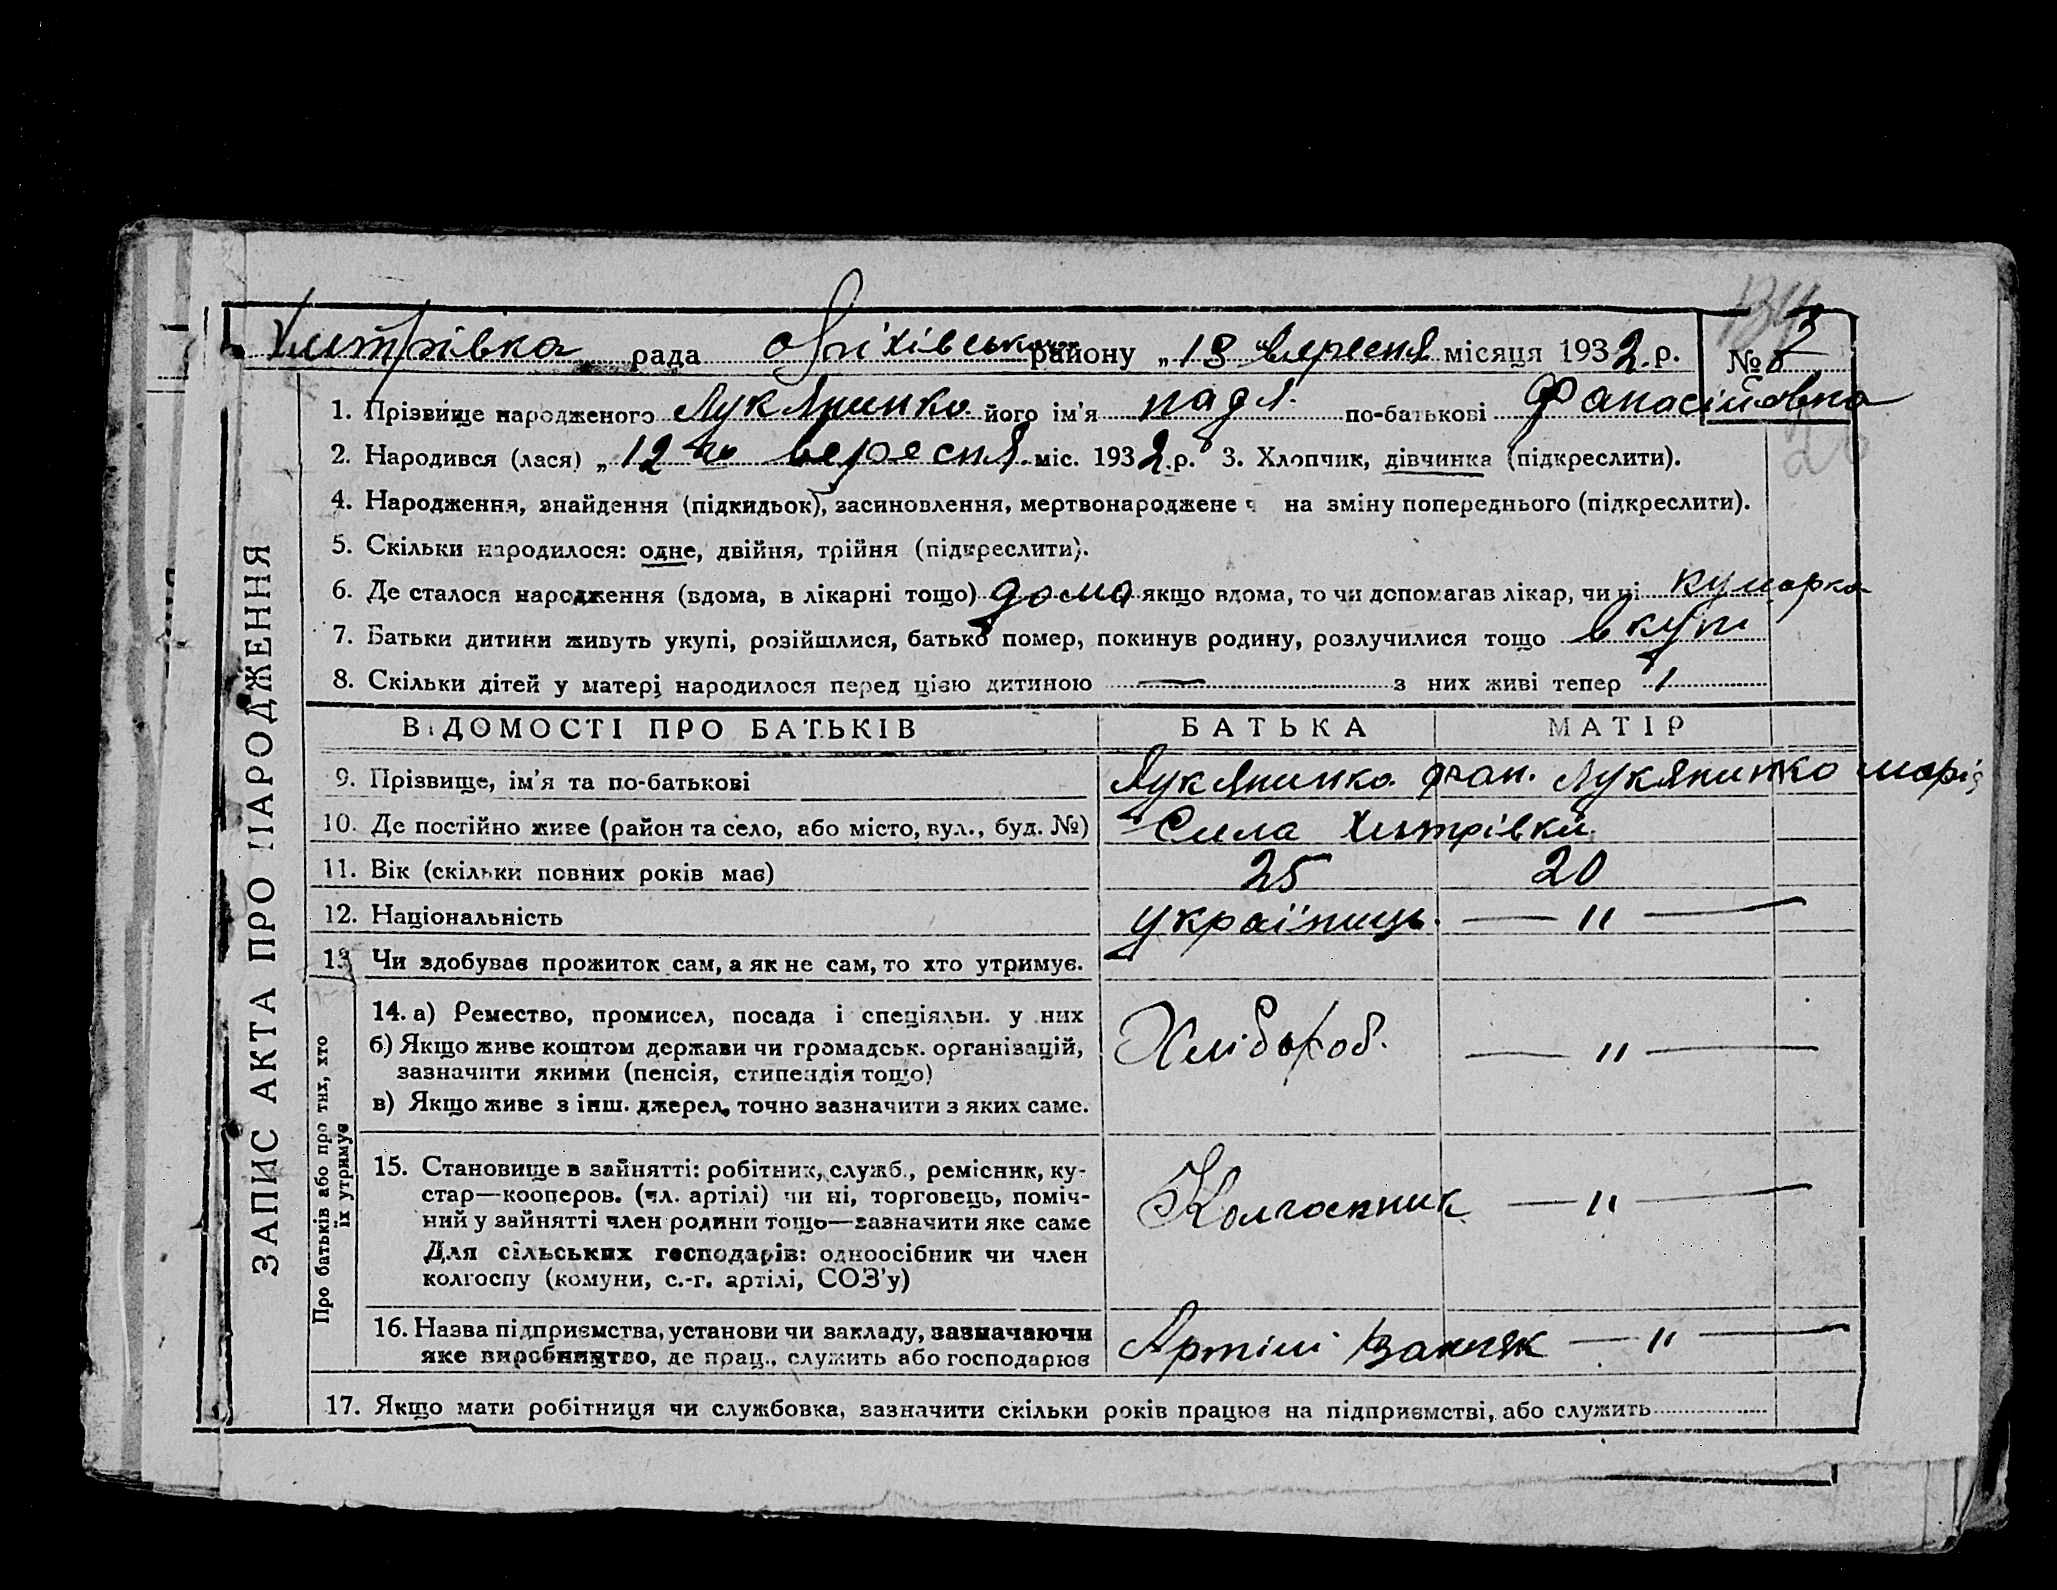 Хитрівка рада Оріхівського району „ 13 " вересня місяця 1932 р. №
1. Прізвище народженого Лукяненко його ім'я надя. по-батькові Фанасійовна
2. Народився (лася) „ 12 го вересня міс. 1932 р. 3. Хлопчик, дівчинка (підкреслити).
4. Народження, знайдення (підкидьок), засиновлення, мертвонароджене ч на зміну попереднього (підкреслити).
5. Скільки народилося: одне, двійня, трійня (підкреслити).
6. Де сталося народження (вдома, в лікарні тощо) дома якщо вдома, то чи допомагав лікар, чи ні
7. Батьки дитини живуть укупі, розійшлися, батько помер, покинув родину, розлучилися тощо вкупі
8. Скільки дітей у матері народилося перед цією дитиною — з них живі тепер 1
ВІДОМОСТІ ПРО БАТЬКІВ БАТЬКА МАТІР
9. Прізвище, ім'я та по-батькові Лукяненко фган. Лукяненко марія
10. Де постійно живе (район та село, або місто, вул., буд. №) Села Хитрівки.
11. Вік (скільки повних років має) 25 20
12. Національність україниць. — " —
13. Чи здобуває прожиток сам, а як не сам, то хто утримує.
14. а) Ремество, промисел, посада і спеціяльн. у них Хлібороб. — " —
б) Якщо живе коштом держави чи громадськ. організацій,
зазначити якими (пенсія, стипендія тощо)
в) Якщо живе з інш. джерел, точно зазначити з яких саме.
15. Становище в зайнятті: робітник, служб., ремісник, ку-
стар—кооперов. (чл. артілі) чи ні, торговець, поміч- Колгоспник — " —
ний у зайнятті член родини тощо—зазначити яке саме
Для сільських господарів: одноосібник чи член
колгоспу (комуни, с.-г. артілі, СОЗ'у)
16. Назва підприємства, установи чи закладу, зазначаючи Артілі — " —
яке виробництво, де прац., служить або господарює
17. Якщо мати робітниця чи службовка, зазначити скільки років працює на підприємстві, або служить
ЗАПИС АКТА ПРО НАРОДЖЕННЯ
Про батьків або про тих, хто
їх утримує